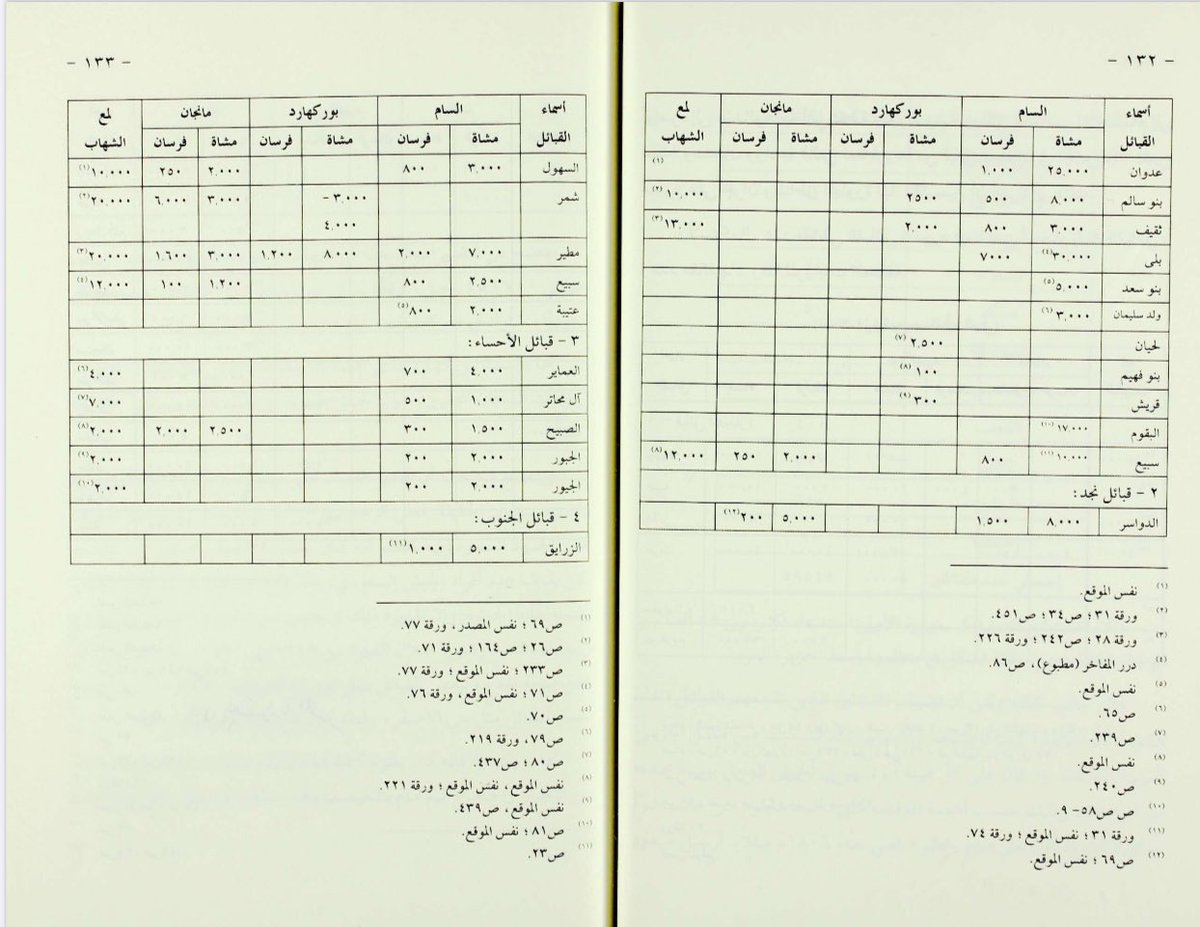 - ١٣٢ -
أسماء القبائل | السام | بوركهارد | مانجان | لمع الشهاب
مشاة | فرسان | مشاة | فرسان | مشاة | فرسان
عدوان | ٢٥.٠٠٠ | ١.٠٠٠ | | | | | (١)
بنو سالم | ٨.٠٠٠ | ٥٠٠ | ٢٥٠٠ | | | | ١٠.٠٠٠(٢)
ثقيف | ٣.٠٠٠ | ٨٠٠ | ٢.٠٠٠ | | | | ١٣.٠٠٠(٣)
بلى | ٣٠.٠٠٠(٤) | ٧٠٠٠ | | | | |
بنو سعد | ٥.٠٠٠(٥) | | | | | |
ولد سليمان | ٣.٠٠٠(٦) | | | | | |
لحيان | | | ٢.٥٠٠(٧) | | | |
بنو فهيم | | | ١٠٠(٨) | | | |
قريش | | | ٣٠٠(٩) | | | |
البقوم | ١٧.٠٠٠(١٠) | | | | | |
سبيع | ١٠.٠٠٠(١١) | ٨٠٠ | | | ٢.٠٠٠ | ٢٥٠ | ١٢.٠٠٠(٨)
٢ - قبائل نجد:
الدواسر | ٨.٠٠٠ | ١.٥٠٠ | | | ٥.٠٠٠ | ٢٠٠(١٢) |
(١) نفس الموقع.
(٢) ورقة ٣١؛ ص٣٤؛ ص٤٥١.
(٣) ورقة ٢٨؛ ص٢٤٢؛ ورقة ٢٢٦.
(٤) درر المفاخر (مطبوع)، ص٨٦.
(٥) نفس الموقع.
(٦) ص٦٥.
(٧) ص٢٣٩.
(٨) نفس الموقع.
(٩) ص٢٤٠.
(١٠) ص ص٥٨- ٩.
(١١) ورقة ٣١؛ نفس الموقع؛ ورقة ٧٤.
(١٢) ص٦٩؛ نفس الموقع.
- ١٣٣ -
أسماء القبائل | السام | بوركهارد | مانجان | لمع الشهاب
مشاة | فرسان | مشاة | فرسان | مشاة | فرسان
السهول | ٣.٠٠٠ | ٨٠٠ | | | ٢.٠٠٠ | ٢٥٠ | ١٠.٠٠٠(١)
شمر | | | ٣.٠٠٠ - | | ٣.٠٠٠ | ٦.٠٠٠ | ٢٠.٠٠٠(٢)
٤.٠٠٠
مطير | ٧.٠٠٠ | ٢.٠٠٠ | ٨.٠٠٠ | ١.٢٠٠ | ٣.٠٠٠ | ١.٦٠٠ | ٢٠.٠٠٠(٣)
سبيع | ٢.٥٠٠ | ٨٠٠ | | | ١.٢٠٠ | ١٠٠ | ١٢.٠٠٠(٤)
عتيبة | ٢.٠٠٠ | ٨٠٠(٥) | | | | |
٣ - قبائل الأحساء:
العماير | ٤.٠٠٠ | ٧٠٠ | | | | | ٤.٠٠٠(٦)
آل محاتر | ١.٠٠٠ | ٥٠٠ | | | | | ٧.٠٠٠(٧)
الصبيح | ١.٥٠٠ | ٣٠٠ | | | ٢٥٠٠ | ٢.٠٠٠ | ٢.٠٠٠(٨)
الجبور | ٢.٠٠٠ | ٢٠٠ | | | | | ٢.٠٠٠(٩)
الجبور | ٢.٠٠٠ | ٢٠٠ | | | | | ٢.٠٠٠(١٠)
٤ - قبائل الجنوب:
الزرايق | ٥.٠٠٠ | ١.٠٠٠(١١) | | | | |
(١) ص٦٩؛ نفس المصدر، ورقة ٧٧.
(٢) ص٢٦؛ ص١٦٤؛ ورقة ٧١.
(٣) ص٢٣٣؛ نفس الموقع؛ ورقة ٧٧.
(٤) ص٧١؛ نفس الموقع، ورقة ٧٦.
(٥) ص٧٠.
(٦) ص٧٩، ورقة ٢١٩.
(٧) ص٨٠؛ ص٤٣٧.
(٨) نفس الموقع، نفس الموقع؛ ورقة ٢٢١.
(٩) نفس الموقع، ص٤٣٩.
(١٠) ص٨١؛ نفس الموقع.
(١١) ص٢٣.